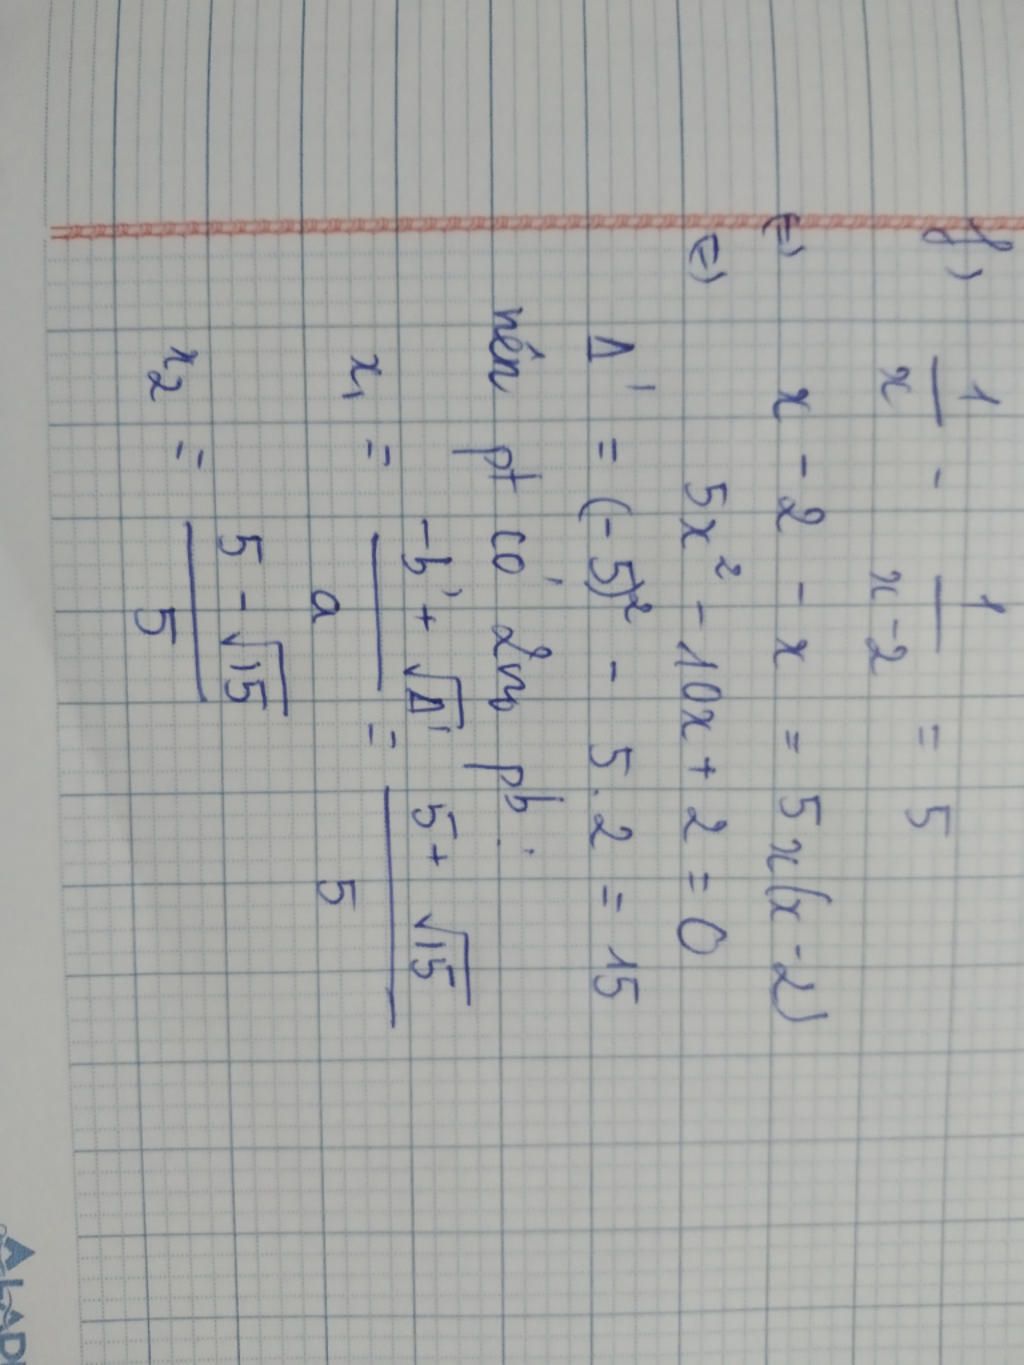 f) 1/x - 1/(x-2) = 5
(=) x - 2 - x = 5x(x-2)
(=) 5x² - 10x + 2 = 0
Δ' = (-5)² - 5.2 = 15
nên pt có 2n₀ pb:
x₁ = (-b' + √Δ')/a = (5 + √15)/5
x₂ = (5 - √15)/5